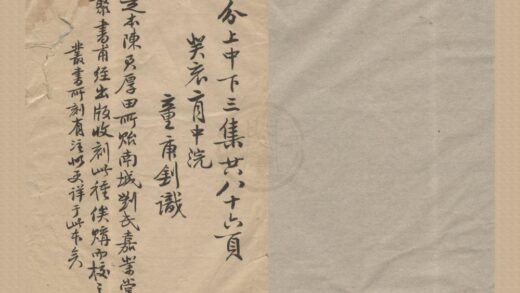 分上中下三集共八十六頁
癸亥月中浣
童釗識
是本陳君厚田所貽南城劉氏嘉業堂
叢書甫經出版收刻此種俟購而校之
叢書所刻有注似更詳于此本矣